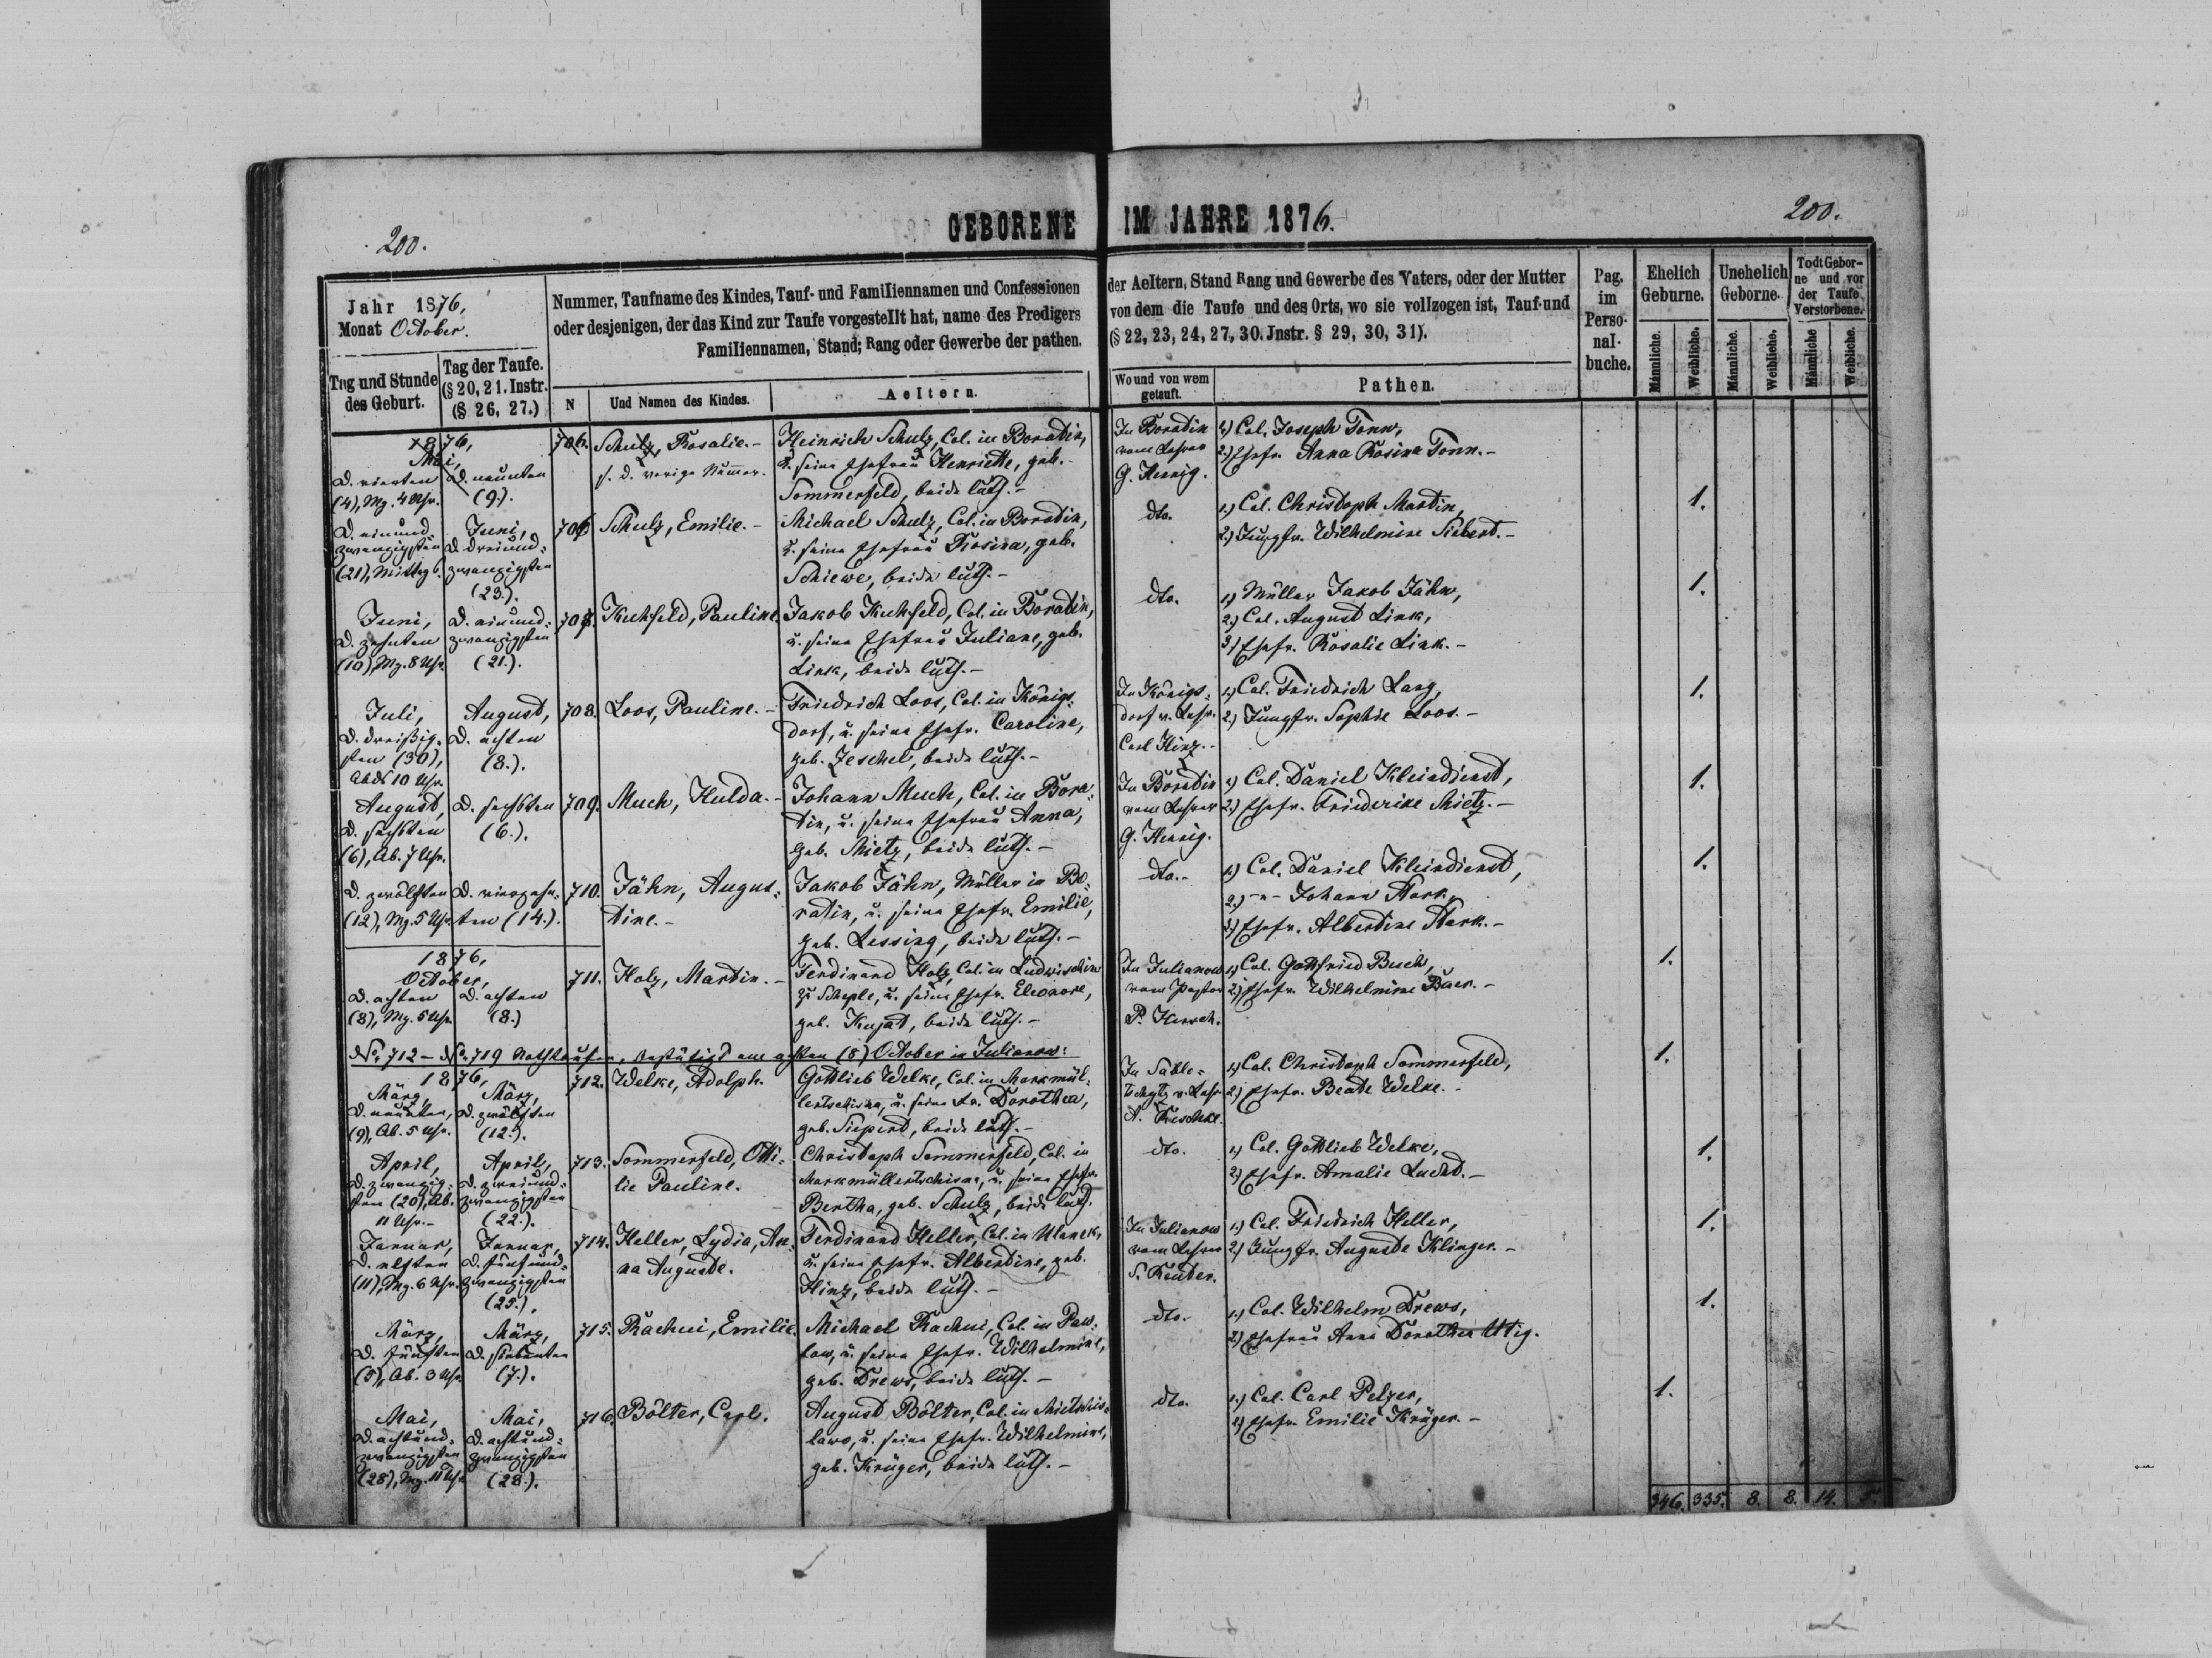 200.
GEBORENE IM JAHRE 1876.
200.
Jahr 1876,
Monat October.
Tag und Stunde des Geburt.
Tag der Taufe.
(§ 20, 21. Instr.
(§ 26, 27.)
Nummer, Taufname des Kindes, Tauf- und Familiennamen und Confessionen
oder desjenigen, der das Kind zur Taufe vorgestellt hat, name des Predigers
Familiennamen, Stand; Rang oder Gewerbe der pathen.
N
Und Namen des Kindes.
Aeltern.
der Aeltern, Stand Rang und Gewerbe des Vaters, oder der Mutter
von dem die Taufe und des Orts, wo sie vollzogen ist, Tauf-und
(§ 22, 23, 24, 27, 30. Jnstr. § 29, 30, 31).
Wo und von wem getauft.
Pathen.
Pag. im Perso-nal-buche.
Ehelich Geburne.
Unehelich Geborne.
Todt Gebor-ne und vor der Taufe Verstorbene.
Männliche.
Weibliche.
Männliche.
Weibliche.
Männliche
Weibliche.
1876,
Mai,
d. vierten
(4), Mg. 4 Uhr.
d. neunten
(9.).
706.
Schulz, Rosalie.-
s. d. vorige Nummer.
Heinrich Schulz, Col. in Boradin,
u. seine Ehefrau Henriette, geb.
Sommerfeld, beide luth.-
In Boradin
vom Lehrer
G. Hennig.
1) Col. Joseph Tonn,
2) Ehefr. Anna Rosine Tonn.-
d. einund-
zwanzigsten
(21), Mittag
Juni,
d. dreiund-
zwanzigsten
(23.).
706
Schulz, Emilie.-
Michael Schulz, Col. in Boradin,
u. seine Ehefrau Rosina, geb.
Schiewe, beide luth.-
dto.
1) Col. Christoph Martin,
2) Jungfr. Wilhelmine Siebert.-
1.
Juni,
d. zehnten
(10), Mg. 8 Uhr
d. einund-
zwanzigsten
(21.).
707.
Kuhfeld, Pauline.
Jakob Kuhfeld, Col. in Boradin,
u. seine Ehefrau Juliane, geb.
Link, beide luth.-
dto.
1) Müller Jakob Jähn,
2) Col. August Link,
3) Ehefr. Rosalie Link.-
1.
Juli,
d. dreißig-
sten (30),
Abds 10 Uhr.
August,
d. achten
(8.).
708.
Loos, Pauline.-
Friedrich Loos, Col. in Königs-
dorf, u. seine Ehefr. Caroline,
geb. Jeschel, beide luth.-
In Königs-
dorf v. Lehr.
Carl Hinz.-
1) Col. Friedrich Lang,
2) Jungfr. Sophie Loos.-
1.
August,
d. sechsten
(6), Ab. 7 Uhr.
d. sechsten
(6.).
709.
Much, Hulda.-
Johann Much, Col. in Bora-
tin, u. seine Ehefrau Anna,
geb. Mietz, beide luth.-
In Boradin
vom Lehrer
G. Hennig.
1) Col. Daniel Kleindienst,
2) Ehefr. Friederike Mietz.-
1.
d. zwölften
(12), Mg. 5 Uhr
d. vierzehn-
ten (14.).
710.
Jähn, Augus-
tine.-
Jakob Jähn, Müller in Bo-
ratin, u. seine Ehefr. Emilie,
geb. Lessing, beide luth.-
dto.-
1) Col. Daniel Kleindienst,
2) -"- Johann Stark,
3) Ehefr. Albertine Stark.-
1.
1876,
October,
d. achten
(8), Mg. 5 Uhr.
d. achten
(8.)
711.
Holz, Martin.-
Ferdinand Holz, Col. in Ludwischin
zu Scheple, u. seine Ehefr. Eleonore,
geb. Kujat, beide luth.-
In Julianow
vom Pastor
P. Kersch.
1) Col. Gottfried Busch,
2) Ehefr. Wilhelmine Baer.-
1.
No. 712 - No. 719 Nothtaufen, bestätigt am achten (8) October in Julianow:
1876,
März,
d. neunten,
(9), Ab. 5 Uhr.
März,
d. zwölften
(12.).
712.
Welke, Adolph.
Gottlieb Welke, Col. in Markmül-
lertschisna, u. seine Fr. Dorothea,
geb. Siepert, beide luth.-
v. Lehr.
A. Reschke.
1) Col. Christoph Sommerfeld,
2) Ehefr. Beate Welke.-
1.
April,
d. zwanzig-
sten (20), Ab.
11 Uhr.-
April,
d. zweiund-
zwanzigsten
(22.).
713.
Sommerfeld, Otti-
lie Pauline.
Christoph Sommerfeld, Col. in
Markmüllertschisna, u. seine Ehefr.
Bertha, geb. Schulz, beide luth.
dto.
1) Col. Gottlieb Welke,
2) Ehefr. Amalie Lucht.-
1.
Januar,
d. elften
(11), Mg. 6 Uhr.
Januar,
d. fünfund-
zwanzigsten
(25.).
714.
Heller, Lydia, An-
na Auguste.
Ferdinand Heller, Col. in Ulanek,
u. seine Ehefr. Albertine, geb.
Hinz, beide luth.-
In Julianow
vom Lehrer
S. Reuter.
1) Col. Friedrich Heller,
2) Jungfr. Auguste Klinger.-
1.
März,
d. fünften
(5), Ab. 3 Uhr.
März,
d. siebenten
(7.).
715.
Rachui, Emilie.
Michael Rachui, Col. in Paw-
low, u. seine Ehefr. Wilhelmine,
geb. Drews, beide luth.-
dto.
1) Col. Wilhelm Drews,
2) Ehefrau Anna Dorothea Utig.
1.
Mai,
d. achtund-
zwanzigsten
(28), Mg. 11 Uhr
Mai,
d. achtund-
zwanzigsten
(28.).
716.
Bölter, Carl.
August Bölter, Col. in Mietschis-
laws, u. seine Ehefr. Wilhelmine,
geb. Krüger, beide luth.-
dto.
1) Col. Carl Pelzer,
2) Ehefr. Emilie Krüger.-
1.
346. 335. 8. 8. 14. 5.